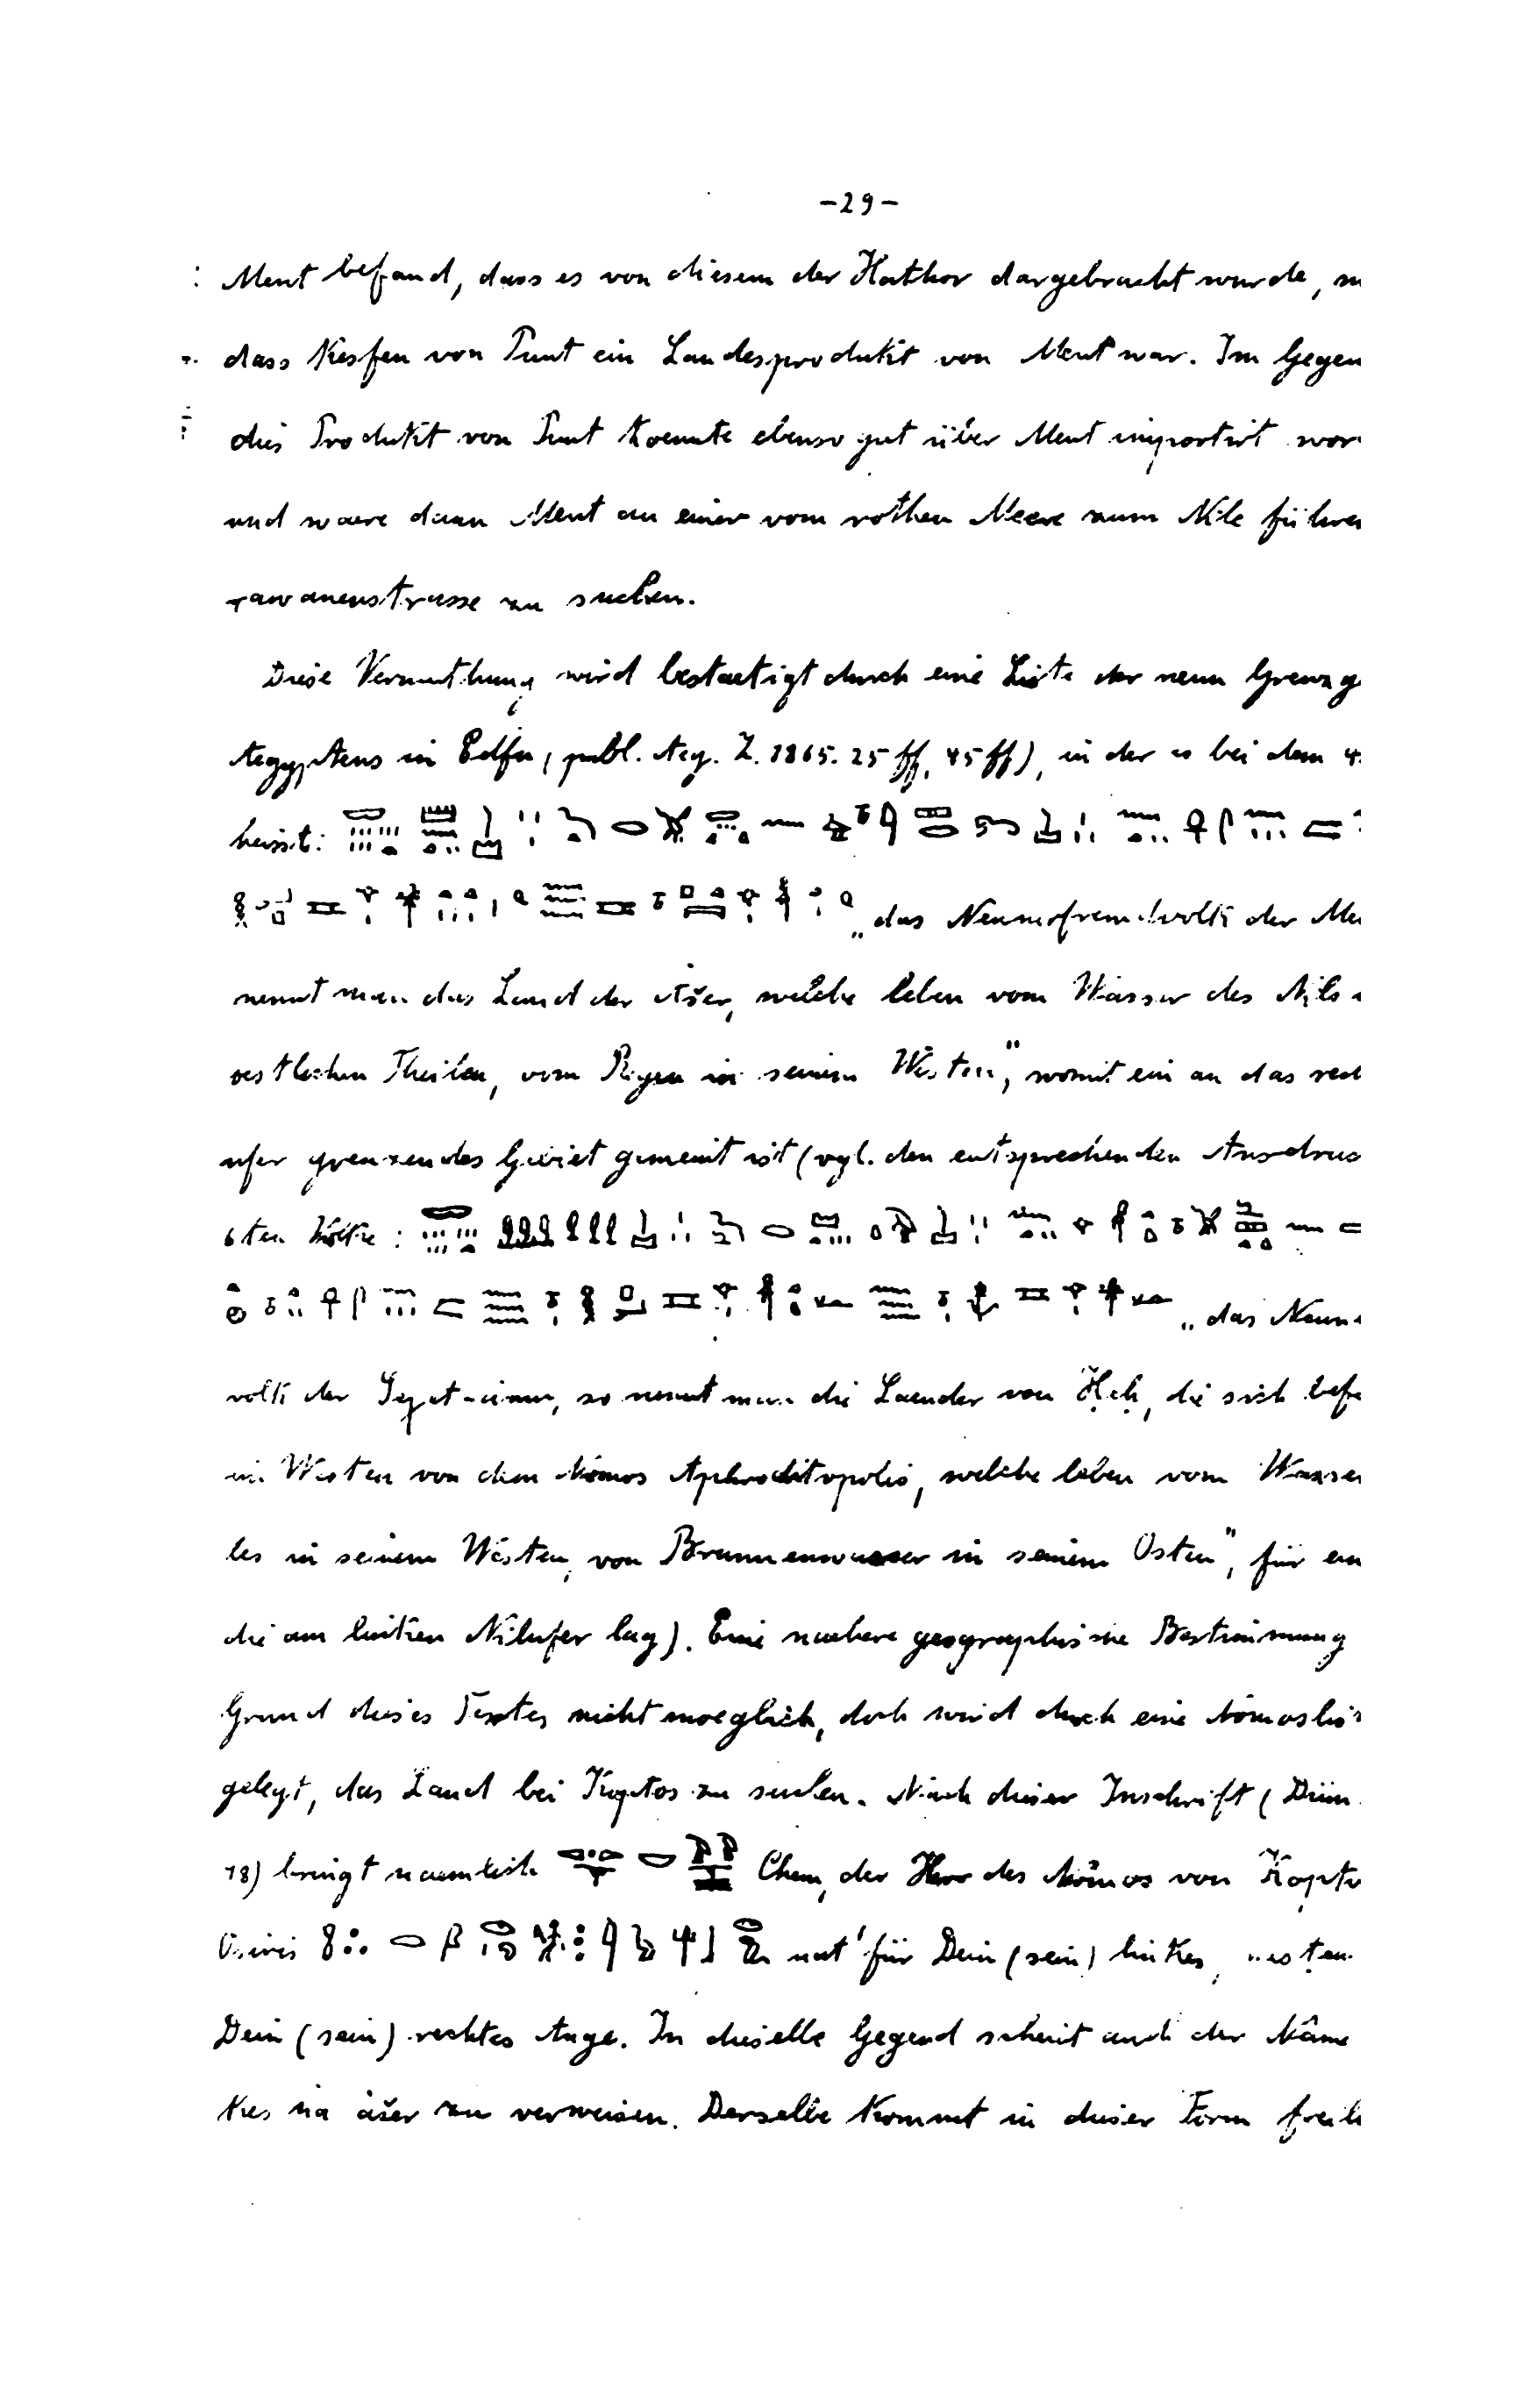 -29-
Ment befand, dass es von diesem der Hathor dargebracht wurde,
dass Kesfen von Punt ein Landesprodukt von Ment war. Im Gegen
dies Produkt von Punt koennte ebenso gut über Ment importirt wor
und waere dann Ment an einer vom rothen Meere zum Nile führen
rawanenstrasse zu suchen.
Diese Vermuthung wird bestaetigt durch eine Liste der neun Grenzg
Aegyptens in Edfu, publ. Aeg. Z. 1865. 25 ff, 45 ff), in der es bei dem 4.
heisst:
„das Neunerfremdvolk der Me
nennt man das Land der Ašer, welche leben vom Wasser des Nils
oestlichen Theilen, vom Regen in seinem Westen", womit ein an das rech
ufer grenzendes Gebiet gemeint ist (vgl. den entsprechenden Ausdruc
6ten Volke:
„das Neun
volk der, so nennt man die Laender von Ḥeḥ, die sich befi
im Westen von dem Nomos Aphroditopolis, welche leben vom Wasser
les in seinem Westen, von Brunnenwasser in seinem Osten", für ein
die am linken Nilufer lag). Eine naehere geographische Bestimmung
Grund dieses Textes nicht moeglich, doch wird durch eine Nomoslis
gelegt, das Land bei Koptos zu suchen. Nach dieser Inschrift (Düm.
18) bringt naemlich Chem, der Herr des Nomos von Kopto
Osiris für Dein (sein) linkes,
Dein (sein) rechtes Auge. In dieselbe Gegend scheint auch der Name
kes na ašer zu verweisen. Derselbe kommt in dieser Form freili